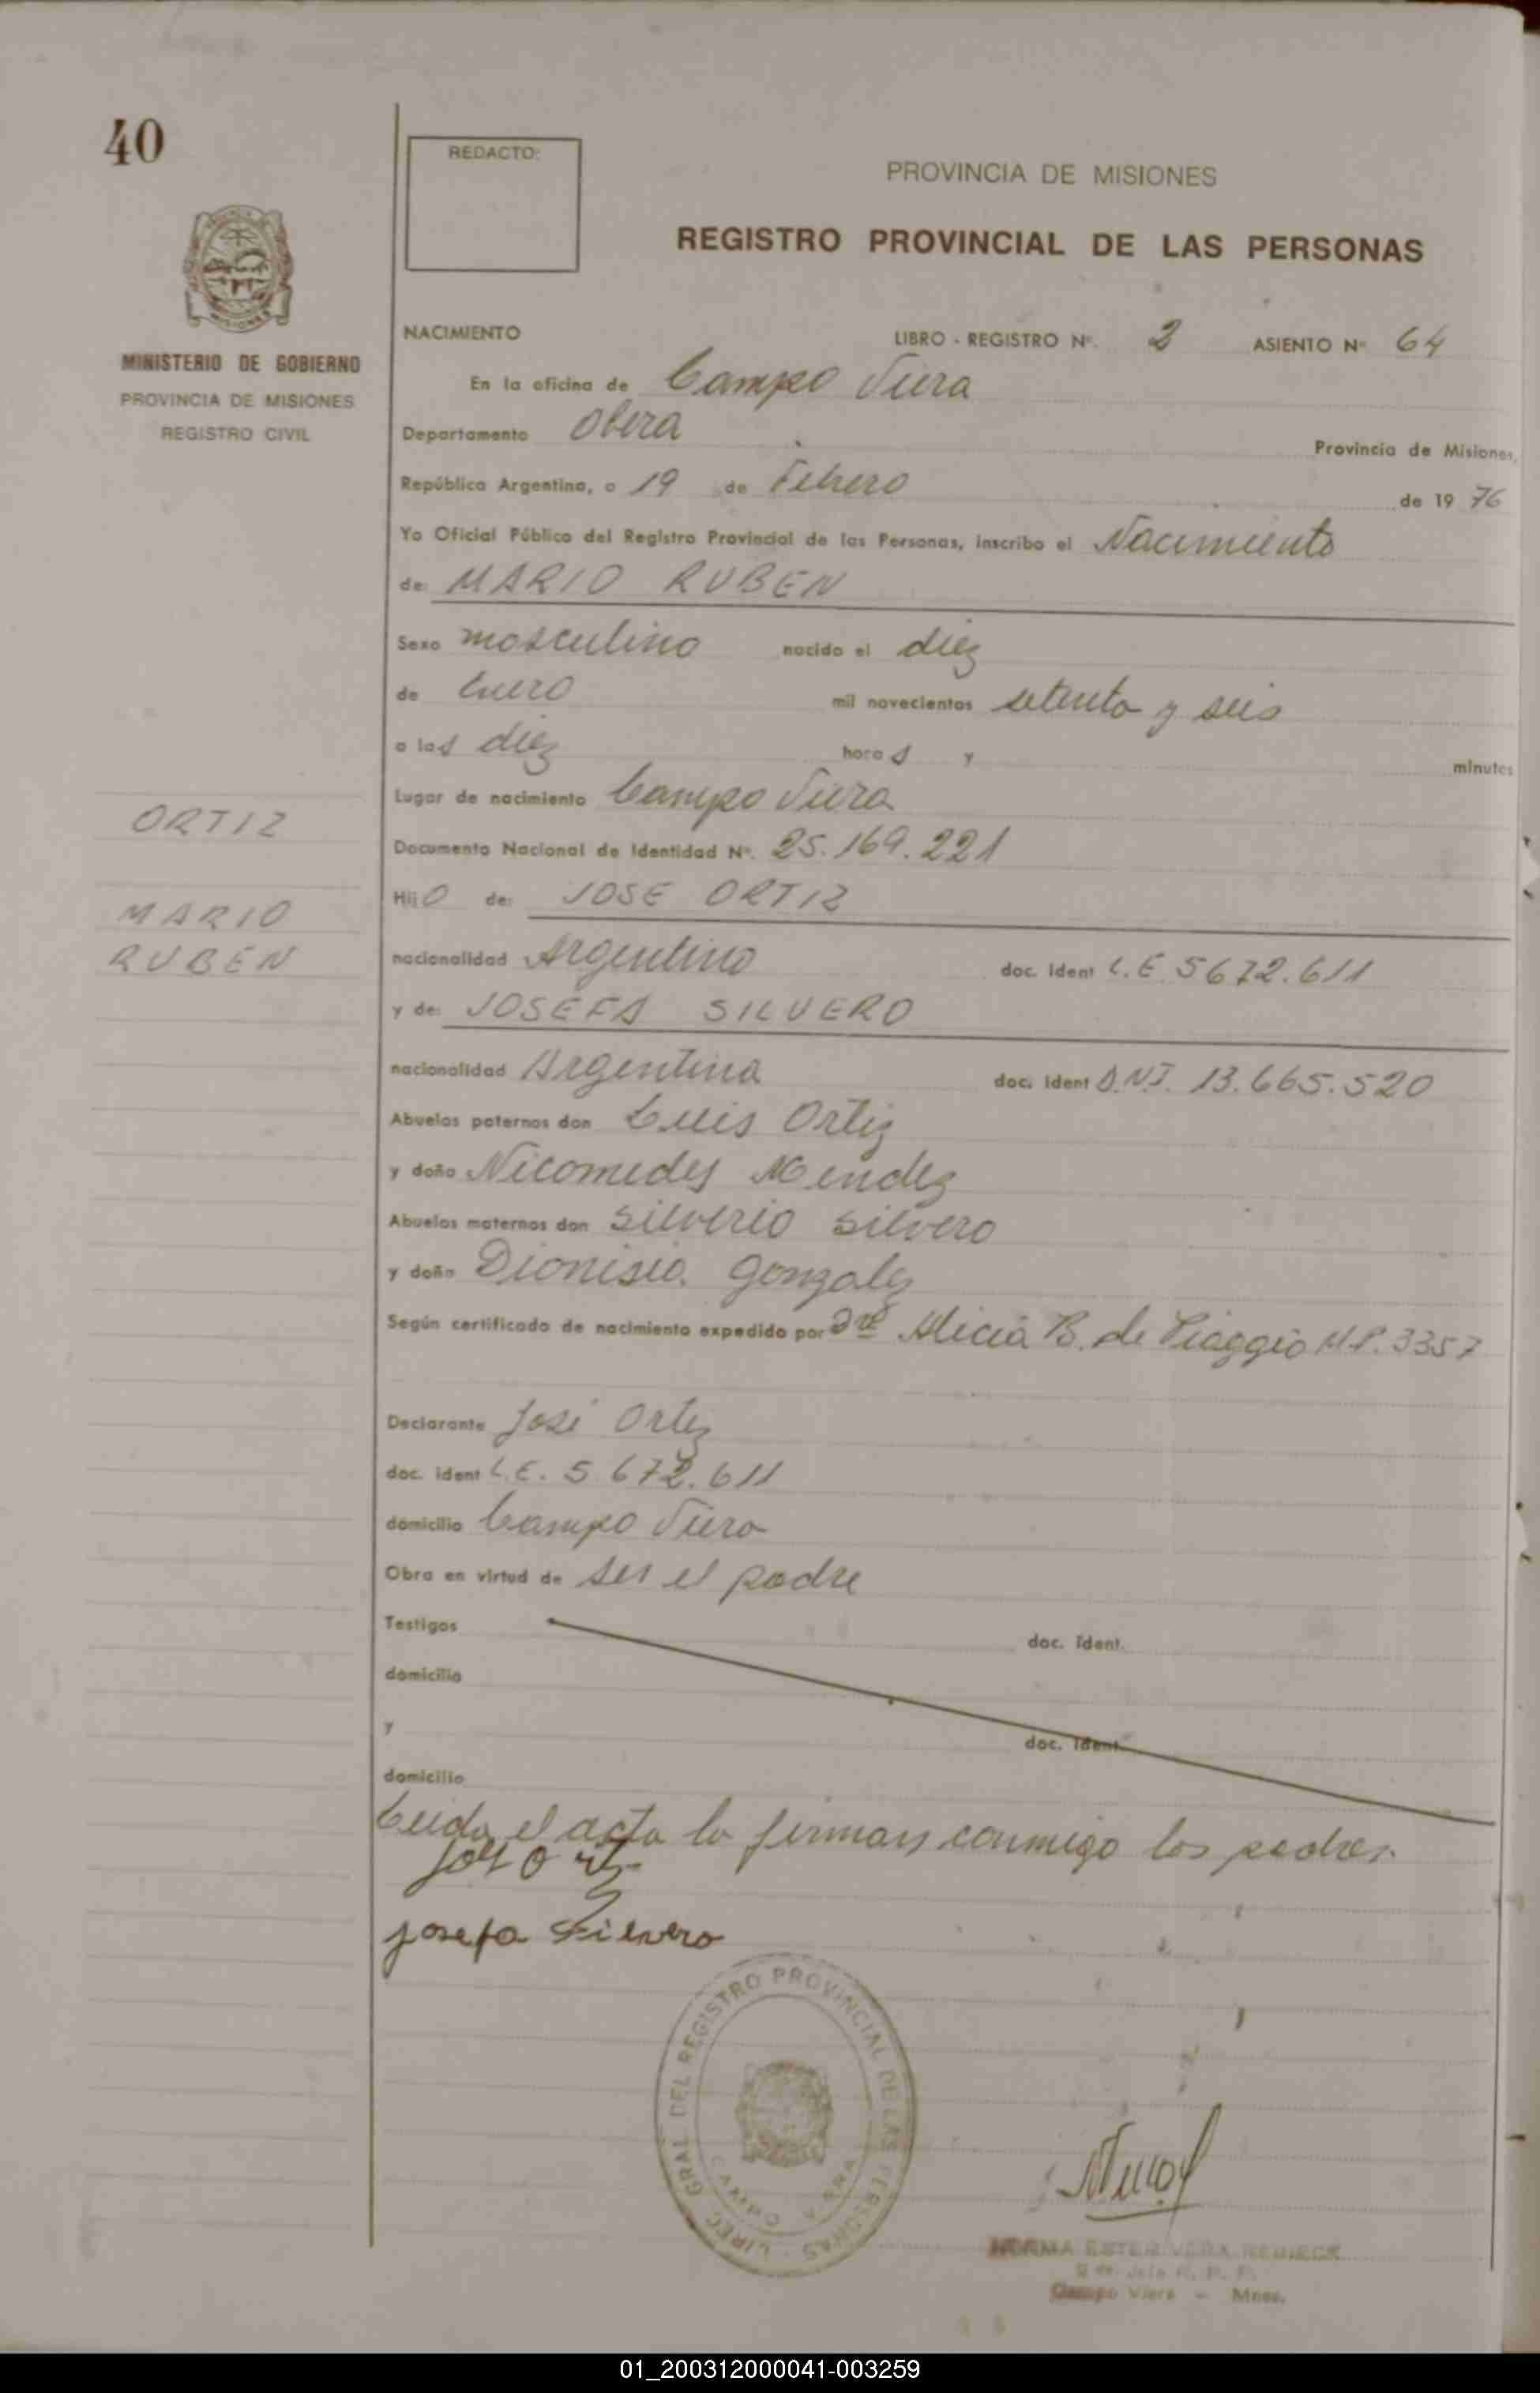 40
REDACTO:
PROVINCIA DE MISIONES
REGISTRO PROVINCIAL DE LAS PERSONAS
MINISTERIO DE GOBIERNO
PROVINCIA DE MISIONES
REGISTRO CIVIL
NACIMIENTO LIBRO - REGISTRO Nº. 2 ASIENTO Nº 64
En la oficina de Campo Viera
Departamento Obera Provincia de Misiones,
República Argentina, a 19 de Febrero de 1976
Yo Oficial Público del Registro Provincial de las Personas, inscribo el Nacimiento
de: MARIO RUBEN
Sexo masculino nacido el diez
de Enero mil novecientos setenta y seis
a las diez horas y minutos
Lugar de nacimiento Campo Viera
ORTIZ
Documento Nacional de Identidad Nº. 25.169.221
Hijo de: JOSE ORTIZ
MARIO
RUBEN
nacionalidad Argentino doc. ident L.E. 5672.611
y de: JOSEFA SILVERO
nacionalidad Argentina doc. ident D.N.I. 13.665.520
Abuelos paternos don Luis Ortiz
y doña Nicomedes Mendez
Abuelos maternos don Silverio Silvero
y doña Dionisia Gonzalez
Según certificado de nacimiento expedido por Dra Alicia B. de Piaggio M.P. 3357
Declarante José Ortiz
doc. ident L.E. 5.672.611
domicilio Campo Viera
Obra en virtud de ser el padre
Testigos doc. ident.
domicilio
y doc. ident
domicilio
Leida el acta la firman conmigo los padres.
Jose Ortiz
Josefa Silvero
DIREC. GRAL. DEL REGISTRO PROVINCIAL DE LAS PERSONAS
CAMPO VIERA
NORMA ESTER VERA
Campo Viera - Mnes.
01_200312000041-003259